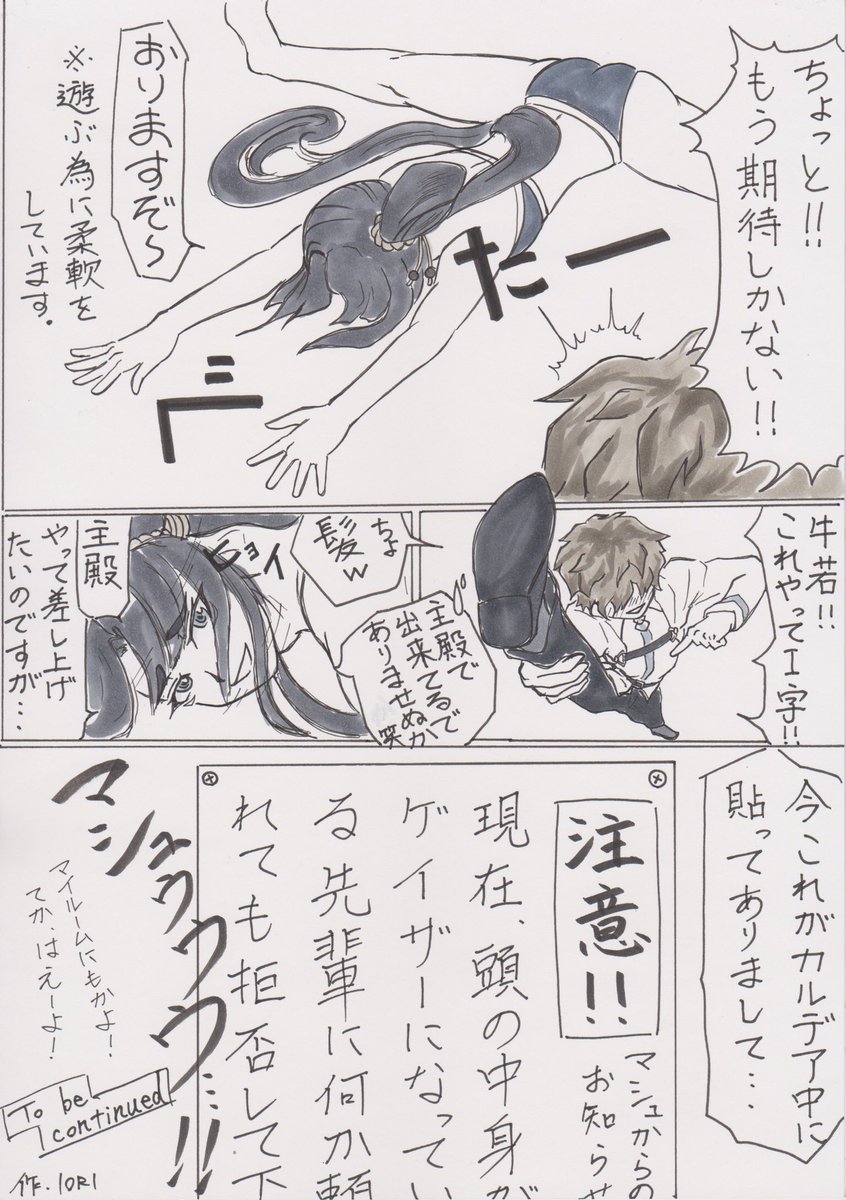 ちょっと!!
もう期待しかない!!
たー
べ
ミ
おりますぞ〜
※遊ぶ為に柔軟を
しています.
牛若!!
これやってI字!!
主殿で
出来てるで
ありませぬか
笑
ちょ
髪w
ヒョイ
主殿
やって差し上げ
たいのですが…
今これがカルデア中に
貼ってありまして…
注意!!
マシュからの
お知らせ
現在、頭の中身が
ゲイザーになってい
る先輩に何か頼
れても拒否して下
マシュウウウ…!!
マイルームにもかよ!
てか、はえーよ!
To be
continued
作.IORI